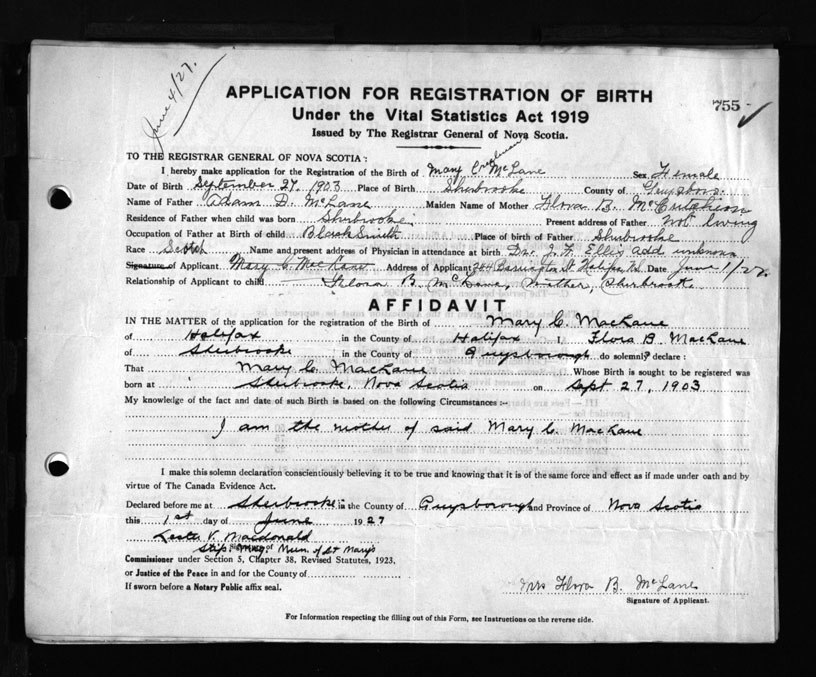 June 4/27.
APPLICATION FOR REGISTRATION OF BIRTH
755
Under the Vital Statistics Act 1919
Issued by The Registrar General of Nova Scotia.
TO THE REGISTRAR GENERAL OF NOVA SCOTIA:
I hereby make application for the Registration of the Birth of Mary C McLane Sex Female
Date of Birth September 27, 1903 Place of Birth Sherbrooke County of Guysboro
Name of Father Adam D. McLane Maiden Name of Mother Flora B. McCutcheon
Residence of Father when child was born Sherbrooke Present address of Father Not living
Occupation of Father at Birth of child BlackSmith Place of birth of Father Sherbrooke
Race Scotch Name and present address of Physician in attendance at birth Dr. J. N. Ellis add unknown
Signature of Applicant Mary C. MacLane Address of Applicant 204 Barrington St Halifax N.S. Date June 1/27.
Relationship of Applicant to child Flora B. McLane, Mother, Sherbrooke
AFFIDAVIT
IN THE MATTER of the application for the registration of the Birth of Mary C. MacLane
of Halifax in the County of Halifax I Flora B. MacLane
of Sherbrooke in the County of Guysborough do solemnly declare:
That Mary C. MacLane Whose Birth is sought to be registered was
born at Sherbrooke, Nova Scotia on Sept 27, 1903
My knowledge of the fact and date of such Birth is based on the following Circumstances :-
I am the mother of said Mary C. MacLane
I make this solemn declaration conscientiously believing it to be true and knowing that it is of the same force and effect as if made under oath and by
virtue of The Canada Evidence Act.
Declared before me at Sherbrooke in the County of Guysborough and Province of Nova Scotia
this 1st day of June 1927
Lester V. Macdonald
Stip. Mag. Mun. of St Mary's
Commissioner under Section 5, Chapter 38, Revised Statutes, 1923.
or Justice of the Peace in and for the County of
If sworn before a Notary Public affix seal.
Mrs Flora B. McLane
Signature of Applicant.
For Information respecting the filling out of this Form, see Instructions on the reverse side.